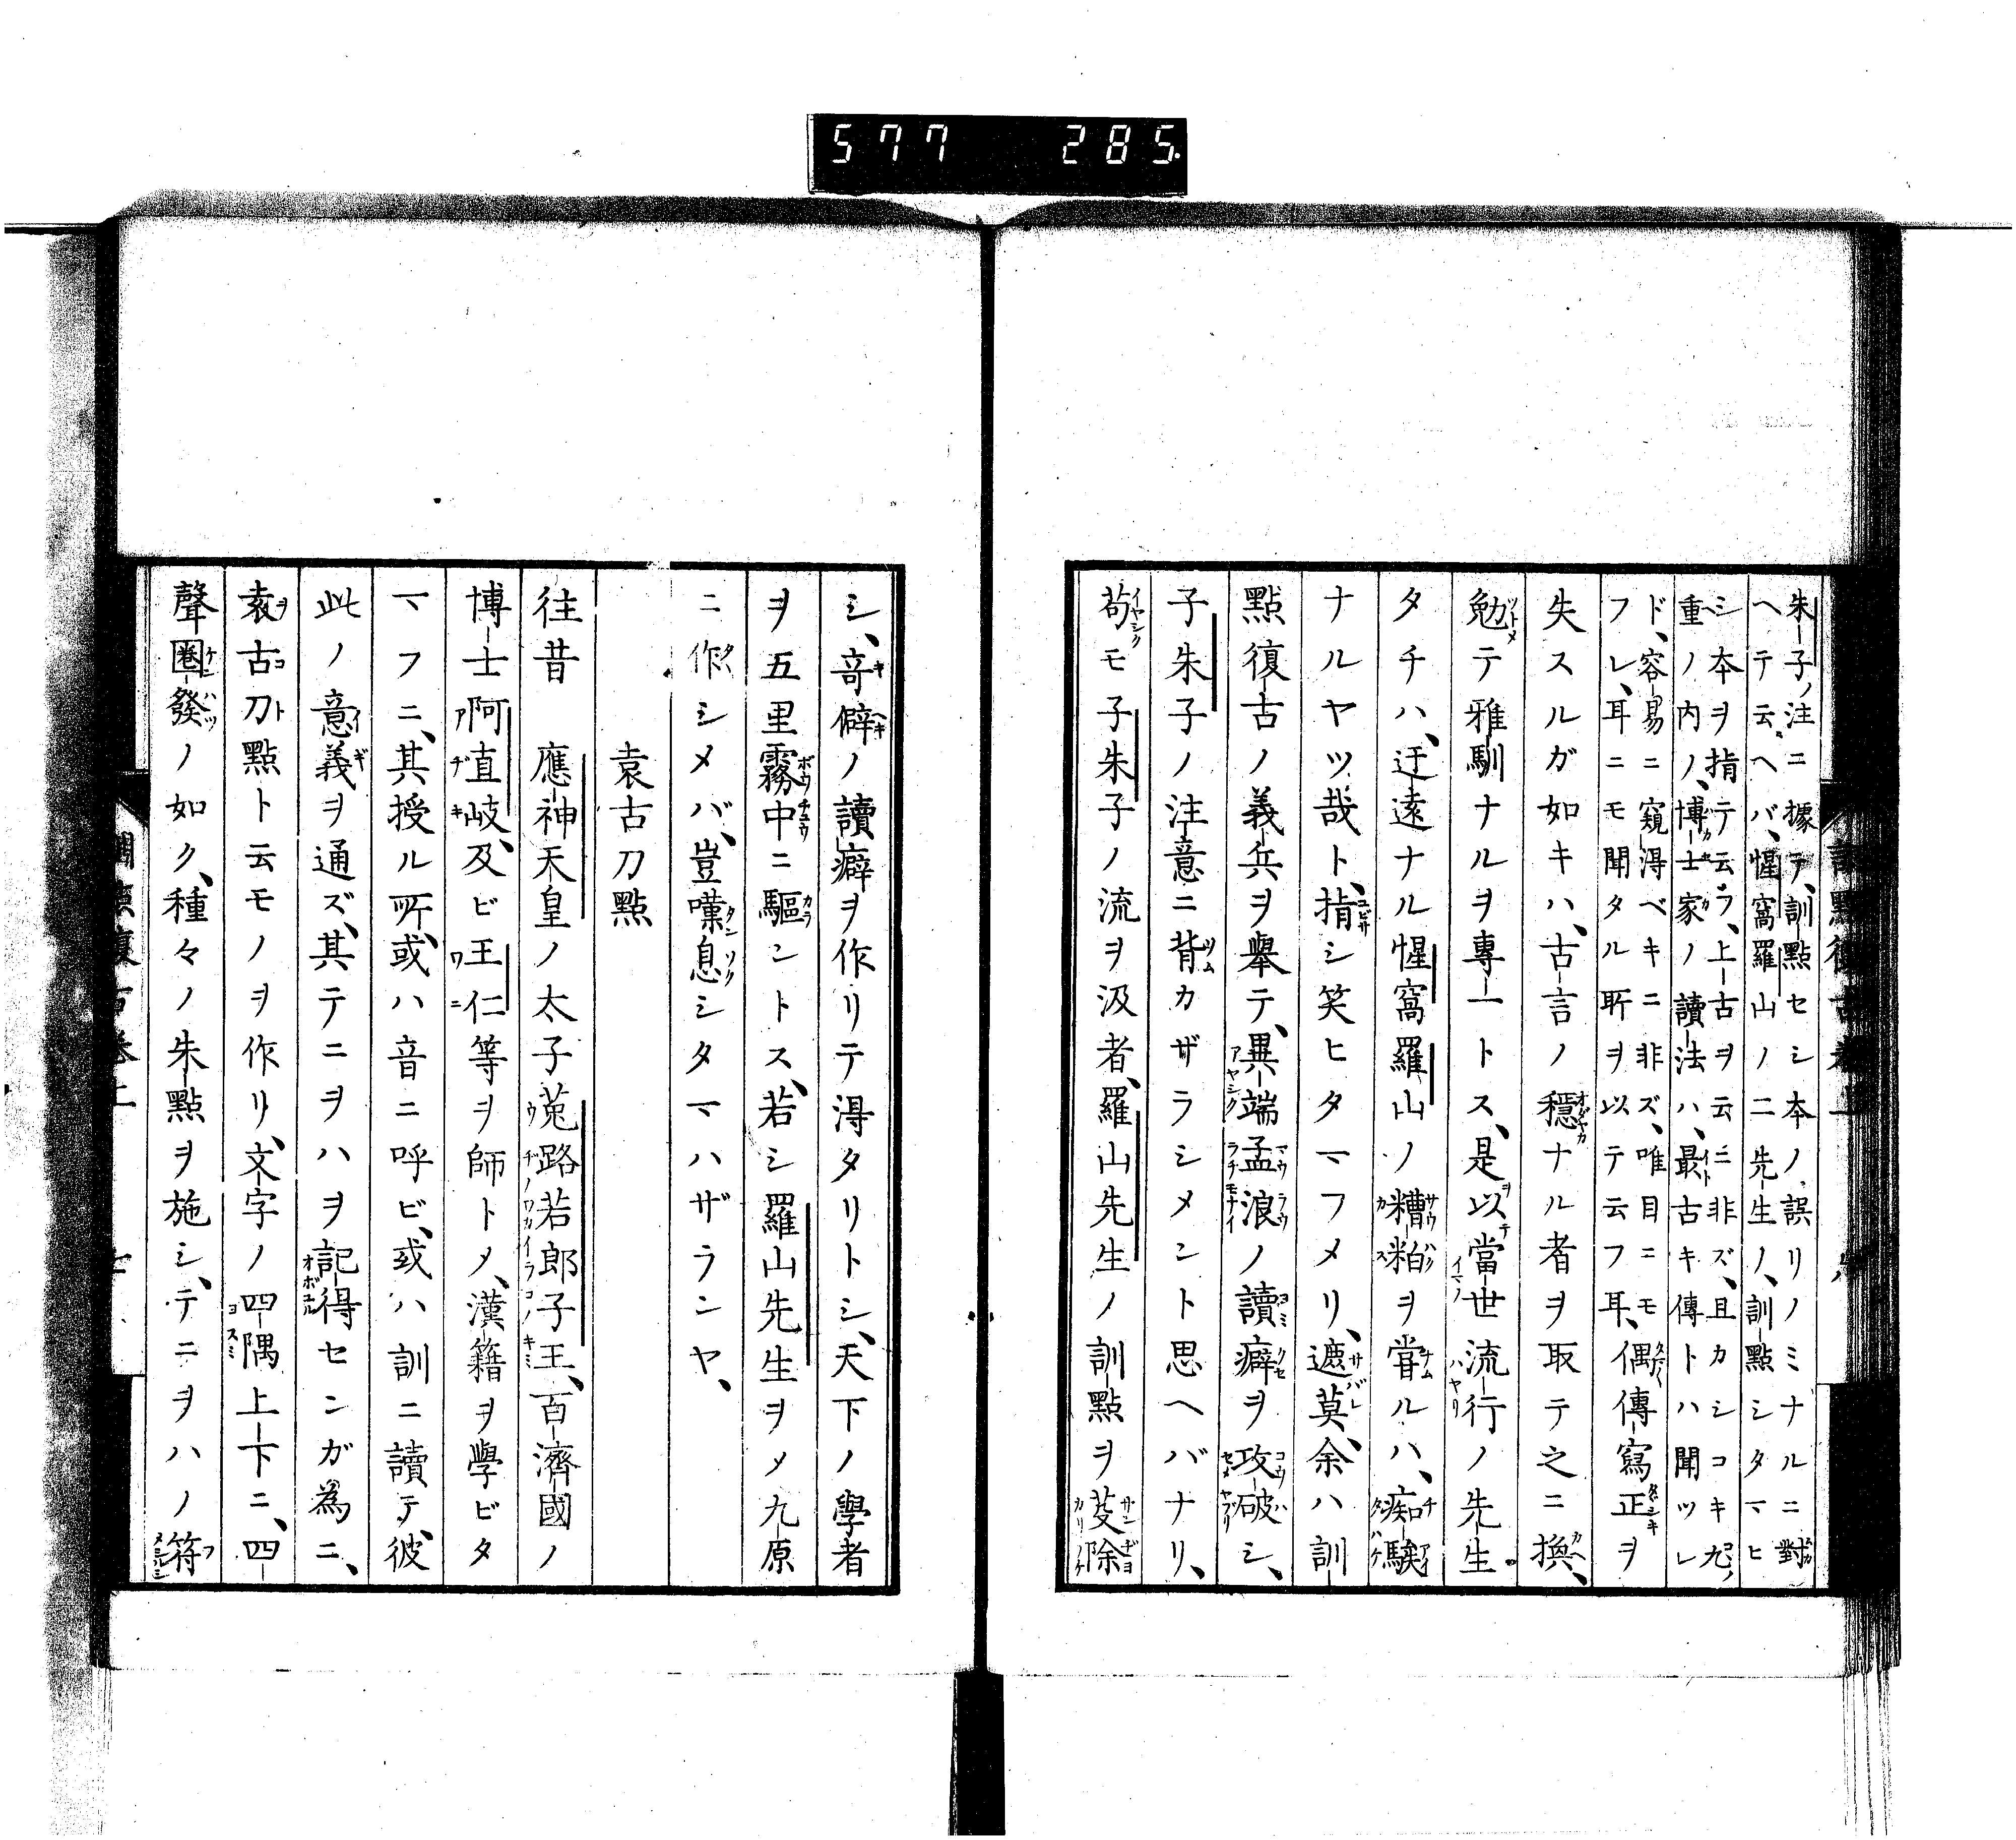 577 285.
朱子ノ注ニ據テ、訓點セシ本ノ、誤リノミナルニ對
ヘテ云ヘバ、惺窩羅山ノ二先生ノ、訓點シタマヒ
シ本ヲ指テ云ラ、上古ヲ云ニ非ズ、且カシコキ
重ノ内ノ、博士家ノ讀法ハ、最古キ傳トハ聞ツレ
ド、容易ニ窺得ベキニ非ズ、唯目ニモ
フレ、耳ニモ聞タル所ヲ以テ云フ耳、偶傳寫正ヲ
失スルガ如キハ、古言ノ穩ナル者ヲ取テ之ニ換、
勉テ雅馴ナルヲ專一トス、是以當世流行ノ先生
タチハ、迂遠ナル惺窩羅山ノ糟粕ヲ甞ルハ、痴騃
ナルヤツ哉ト、指シ笑ヒタマフメリ、遮莫、余ハ訓
點復古ノ義兵ヲ舉テ、異端孟浪ノ讀癖ヲ攻破シ、
子朱子ノ注意ニ背カザラシメント思ヘバナリ、
苟モ子朱子ノ流ヲ汲者、羅山先生ノ訓點ヲ芟除
シ、竒僻ノ讀癖ヲ作リテ得タリトシ、天下ノ學者
ヲ五里霧中ニ驅ントス、若シ羅山先生ヲメ九原
ニ作シメバ、豈嘆息シタマハザランヤ、
袁古刀點
往昔 應神天皇ノ太子菟路若郎子王、百濟國ノ
博士阿直岐、及ビ王仁等ヲ師トメ、漢籍ヲ學ビタ
マフニ、其授ル所、或ハ音ニ呼ビ、或ハ訓ニ讀テ、彼
此ノ意義ヲ通ズ、其テニヲハヲ記得センガ為ニ、
袁古刀點ト云モノヲ作リ、文字ノ四隅上下ニ、四
聲圈發ノ如ク、種々ノ朱點ヲ施シ、テニヲハノ符